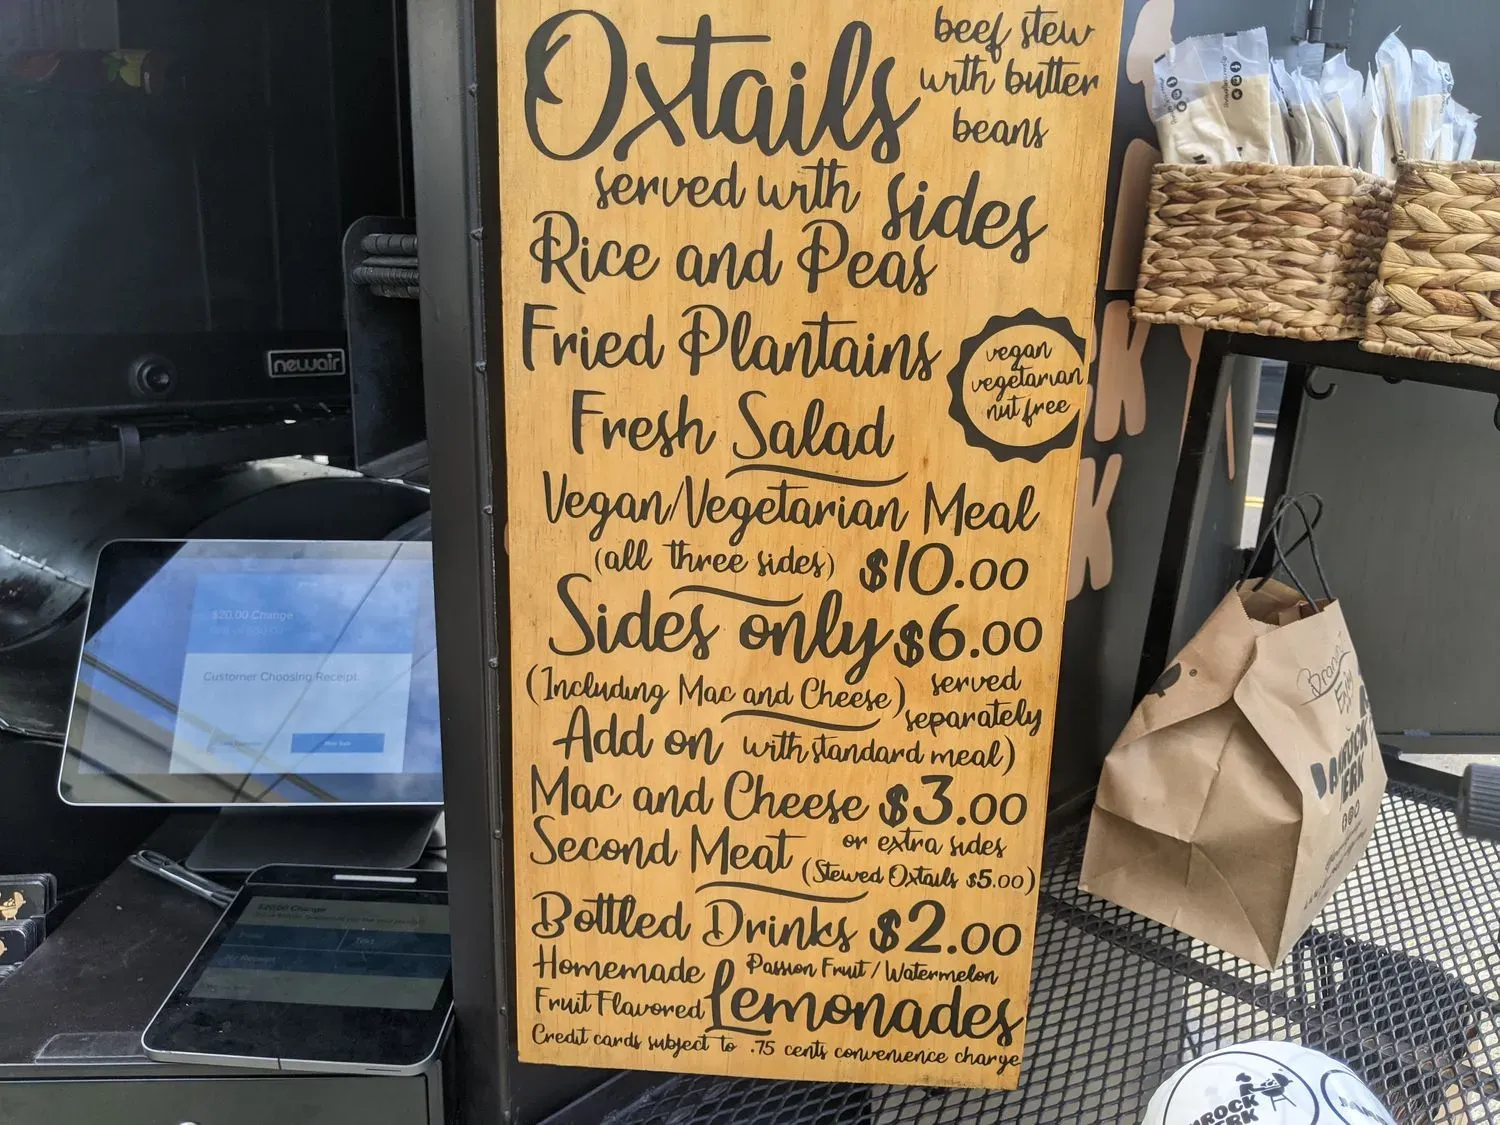 Oxtails
beef stew
with butter
beans
served with sides
Rice and Peas
Fried Plantains
Fresh Salad
vegan
vegetarian
nut free
Vegan/Vegetarian Meal
(all three sides) $10.00
Sides only $6.00
(Including Mac and Cheese) served
separately
Add on with standard meal)
Mac and Cheese $3.00
Second Meat or extra sides
(Stewed Oxtails $5.00)
Bottled Drinks $2.00
Homemade Passion Fruit / Watermelon
Fruit Flavored Lemonades
Credit cards subject to .75 cents convenience charge
newair
$20.00 Change
Customer Choosing Receipt.
New Sale
$20.00 Change
Text
My Receipt
Enjoy
JERK
ROCK